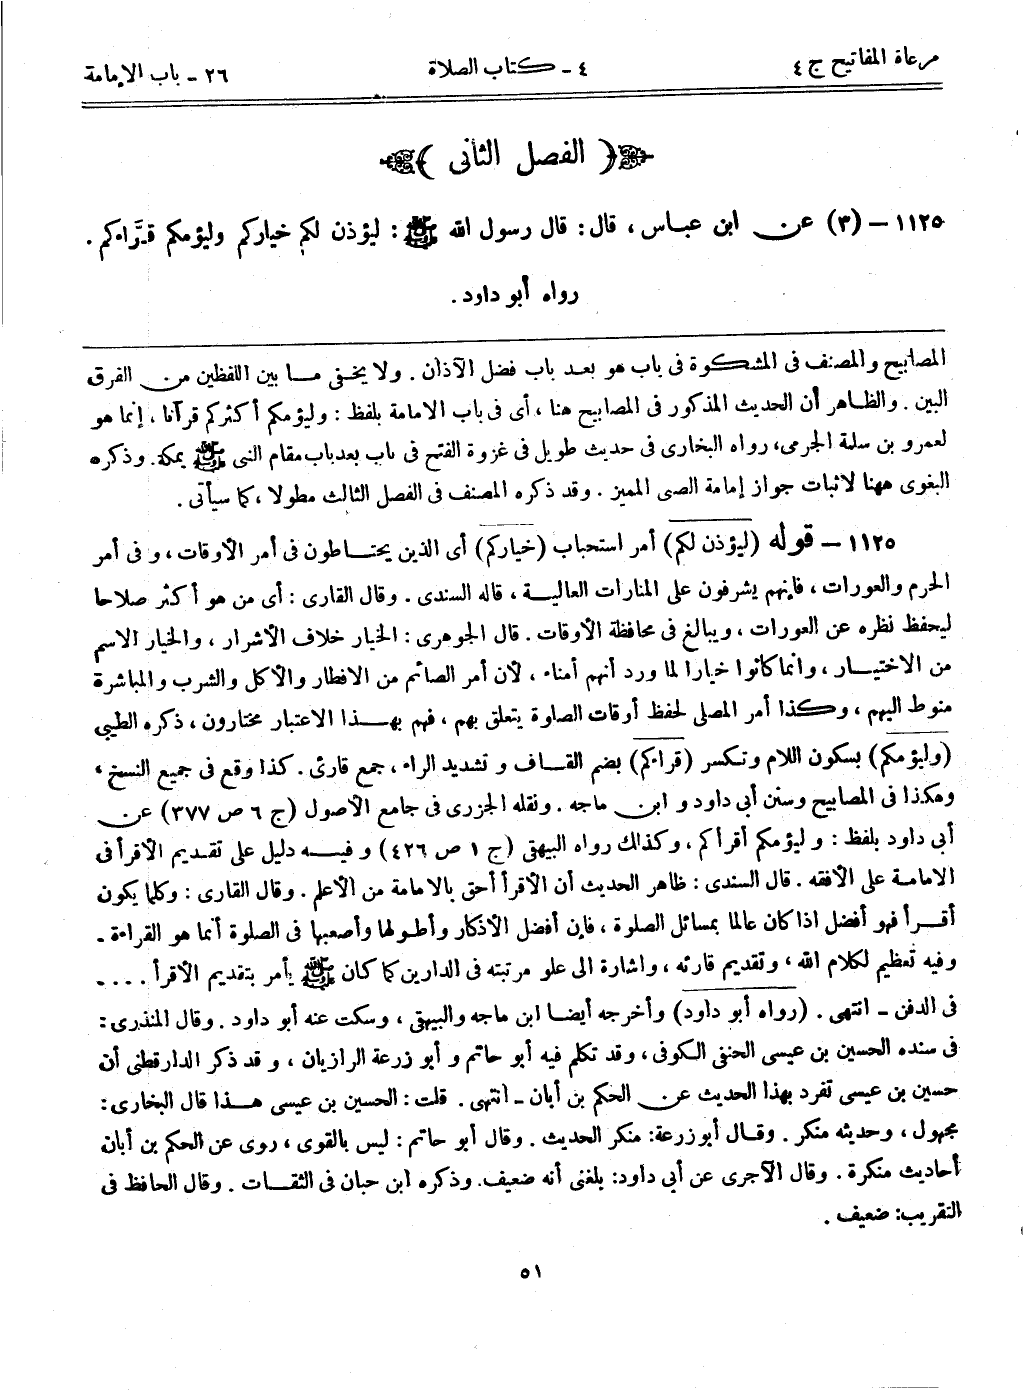 مرعاة المفاتيح ج ٤
٤ ـ كتاب الصلاة
٢٦ ـ باب الإمامة
﴿ الفصل الثانى ﴾
١١٢٥ – (٣) عن ابن عباس ، قال : قال رسول الله ﷺ : ليؤذن لكم خياركم وليؤمكم قرّاءكم .
رواه أبو داود .
المصابيح والمصنف فى المشكوة فى باب هو بعد باب فضل الآذان . ولا يخفى ما بين اللفظين من الفرق
البين . والظاهر أن الحديث المذكور فى المصابيح هنا ، أى فى باب الامامة بلفظ : وليؤمكم أكثركم قرآنا ، إنما هو
لعمرو بن سلمة الجرمى، رواه البخارى فى حديث طويل فى غزوة الفتح فى باب بعد باب مقام النبى ﷺ بمكة. وذكره
البغوى ههنا لاثبات جواز إمامة الصبى المميز . وقد ذكره المصنف فى الفصل الثالث مطولا ، كما سيأتى .
١١٢٥ – قوله (ليؤذن لكم) أمر استحباب (خياركم) أى الذين يحتاطون فى أمر الأوقات ، و فى أمر
الحرم والعورات ، فإنهم يشرفون على المنارات العالية ، قاله السندى . وقال القارى : أى من هو أكثر صلاحا
ليحفظ نظره عن العورات ، ويبالغ فى محافظة الأوقات . قال الجوهرى : الخيار خلاف الأشرار ، والخيار الاسم
من الاختيار ، وانما كانوا خيارا لما ورد أنهم أمناء ، لأن أمر الصائم من الافطار والأكل والشرب والمباشرة
منوط اليهم ، وكذا أمر المصلى لحفظ أوقات الصلوة يتعلق بهم ، فهم بهذا الاعتبار مختارون ، ذكره الطيبى
(وليؤمكم) بسكون اللام وتكسر (قراءكم) بضم القاف و تشديد الراء ، جمع قارئ . كذا وقع فى جميع النسخ ،
وهكذا فى المصابيح وسنن أبى داود و ابن ماجه . ونقله الجزرى فى جامع الأصول (ج ٦ ص ٣٧٧) عن
أبى داود بلفظ : و ليؤمكم أقرأكم ، وكذلك رواه البيهقى (ج ١ ص ٤٢٦) و فيه دليل على تقديم الأقرأ فى
الامامة على الأفقه . قال السندى : ظاهر الحديث أن الأقرأ أحق بالامامة من الأعلم . وقال القارى : وكلما يكون
أقرأ فهو أفضل اذا كان عالما بمسائل الصلوة ، فإن أفضل الأذكار وأطولها وأصعبها فى الصلوة أنما هو القراءة ـ
وفيه تعظيم لكلام الله ، وتقديم قارئه ، واشارة الى علو مرتبته فى الدارين كما كان ﷺ يأمر بتقديم الأقرأ . . . ـ
فى الدفن ـ انتهى . (رواه أبو داود) وأخرجه أيضا ابن ماجه والبيهقى ، وسكت عنه أبو داود . وقال المنذرى :
فى سنده الحسين بن عيسى الحنفى الكوفى ، وقد تكلم فيه أبو حاتم و أبو زرعة الرازيان ، و قد ذكر الدارقطنى أن
حسين بن عيسى تفرد بهذا الحديث عن الحكم بن أبان ـ انتهى . قلت : الحسين بن عيسى هذا قال البخارى :
مجهول ، وحديثه منكر . وقال أبوزرعة: منكر الحديث . وقال أبو حاتم : ليس بالقوى ، روى عن الحكم بن أبان
أحاديث منكرة . وقال الآجرى عن أبى داود: بلغنى أنه ضعيف. وذكره ابن حبان فى الثقات . وقال الحافظ فى
التقريب: ضعيف .
٥١